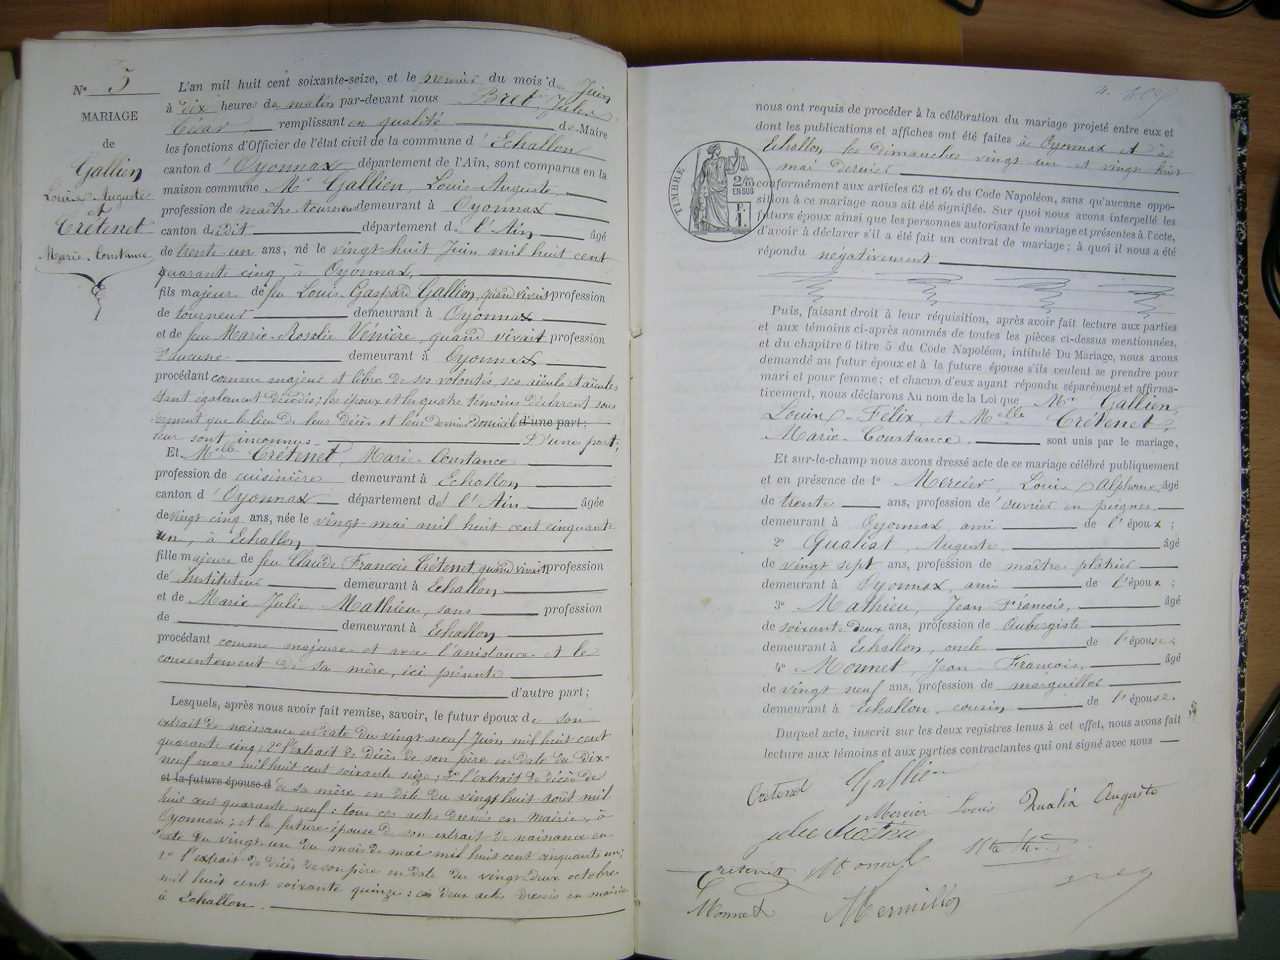 N° 5
MARIAGE
de
Gallien
Louis Auguste
et
Crétenet
Marie-Constance
L'an mil huit cent soixante-seize, et le premier du mois de Juin
à dix heures du matin par-devant nous Bret, Jules
César, remplissant en qualité de Maire
les fonctions d'Officier de l'état civil de la commune d'Echallon
canton d'Oyonnax département de l'Ain, sont comparus en la
maison commune Mr Gallien, Louis Auguste
profession de maître tourneur demeurant à Oyonnax
canton dudit département de l'Ain âgé
de trente un ans, né le vingt huit Juin mil huit cent
quarante cinq, à Oyonnax,
fils majeur de feu Louis Gaspard Gallien, quand vivait profession
de tourneur demeurant à Oyonnax
et de feu Marie-Rosalie Vénière, quand vivait profession
d'aucune demeurant à Oyonnax
procédant comme majeur et libre de ses volontés, ses aïeuls et aïeules
étant également décédés; les époux et les quatre témoins déclarent sous
serment que le lieu de leur décès et leur dernier domicile d'une part;
leur sont inconnus. D'une part;
Et Melle Crétenet, Marie Constance
profession de cuisinière demeurant à Echallon
canton d'Oyonnax département de l'Ain âgée
de vingt cinq ans, née le vingt mai mil huit cent cinquante
un, à Echallon
fille majeure de feu Claude François Crétenet, quand vivait profession
de Instituteur demeurant à Echallon
et de Marie Julie Mathieu, sans profession
de demeurant à Echallon
procédant comme majeure et avec l'assistance et le
consentement de sa mère, ici présente
d'autre part;
Lesquels, après nous avoir fait remise, savoir, le futur époux de son
extrait de naissance en date du vingt neuf Juin mil huit cent
quarante cinq; 2° l'extrait de décès de son père en date du dix-
neuf mars mil huit cent soixante seize; 3° l'extrait de décès de
et la future épouse d de sa mère en date du vingt huit août mil
huit cent quarante neuf: tous ces actes dressés en mairie, à
Oyonnax; et la future épouse de son extrait de naissance en
date du vingt un du mois de mai mil huit cent cinquante un;
2° l'extrait de décès de son père en date du vingt deux octobre
mil huit cent soixante quinze: ces deux actes dressés en mairie
à Echallon.
4.
TIMBRE
2/10
EN SUS
nous ont requis de procéder à la célébration du mariage projeté entre eux et
dont les publications et affiches ont été faites à Oyonnax et à
Echallon les dimanches vingt un et vingt huit
mai dernier
conformément aux articles 63 et 64 du Code Napoléon, sans qu'aucune oppo-
sition à ce mariage nous ait été signifiée. Sur quoi nous avons interpellé les
futurs époux ainsi que les personnes autorisant le mariage et présentes à l'acte,
d'avoir à déclarer s'il a été fait un contrat de mariage; à quoi il nous a été
répondu négativement
Puis, faisant droit à leur réquisition, après avoir fait lecture aux parties
et aux témoins ci-après nommés de toutes les pièces ci-dessus mentionnées,
et du chapitre 6 titre 5 du Code Napoléon, intitulé Du Mariage, nous avons
demandé au futur époux et à la future épouse s'ils veulent se prendre pour
mari et pour femme; et chacun d'eux ayant répondu séparément et affirma-
tivement, nous déclarons Au nom de la Loi que Mr Gallien
Louis-Félix, et Melle Crétenet,
Marie-Constance. sont unis par le mariage,
Et sur-le-champ nous avons dressé acte de ce mariage célébré publiquement
et en présence de 1° Mercier, Louis Alphonse, âgé
de trente ans, profession d'ouvrier en peignes
demeurant à Oyonnax ami de l'époux;
2° Qualiat, Auguste, âgé
de vingt sept ans, profession de maître plâtrier
demeurant à Oyonnax, ami de l'époux;
3° Mathieu, Jean François, âgé
de soixante deux ans, profession de Aubergiste
demeurant à Echallon, oncle de l'épouse
4° Monnet, Jean François, âgé
de vingt neuf ans, profession de marguillier
demeurant à Echallon, cousin de l'épouse.
Duquel acte, inscrit sur les deux registres tenus à cet effet, nous avons fait
lecture aux témoins et aux parties contractantes qui ont signé avec nous
Crétenet Gallien
Mercier Louis Auguste
Crétenet
Monnet Mermillon